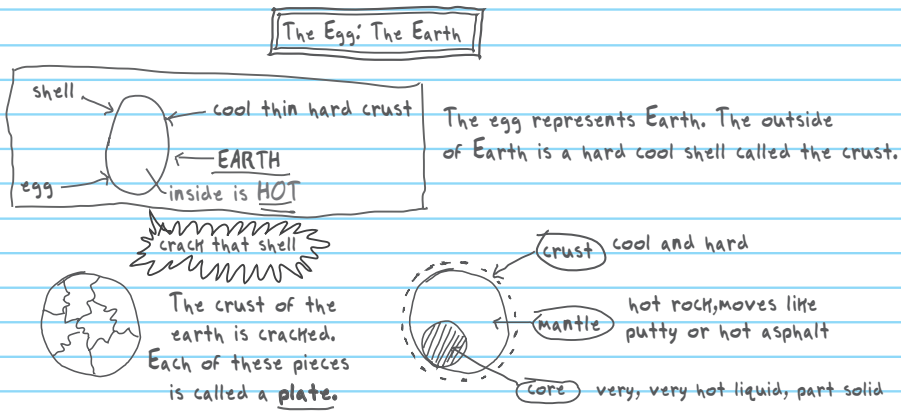 The Egg: The Earth
shell
cool thin hard crust
EARTH
egg
inside is HOT
The egg represents Earth. The outside
of Earth is a hard cool shell called the crust.
crack that shell
The crust of the
earth is cracked.
Each of these pieces
is called a plate.
crust cool and hard
mantle hot rock, moves like
putty or hot asphalt
core very, very hot liquid, part solid